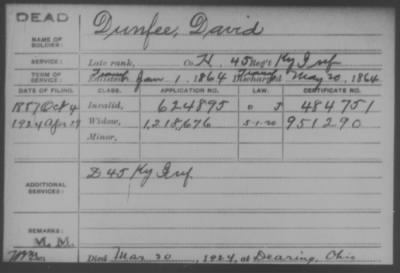 DEAD
NAME OF SOLDIER: Dunfee, David
SERVICE: Late rank, Co. K. 45 Reg't Ky Inf
TERM OF SERVICE: Enlisted Jan 1, 1864 Discharged May 20, 1864
DATE OF FILING. CLASS. APPLICATION NO. LAW. CERTIFICATE NO.
1887 Oct 4 Invalid, 624895 484751
1924 Apr 17 Widow, 1,218,676 5-1-20 951290
Minor,
ADDITIONAL SERVICES: D 45 Ky Inf.
REMARKS:
Died Mar 20, 1924, at Dearing, Ohio